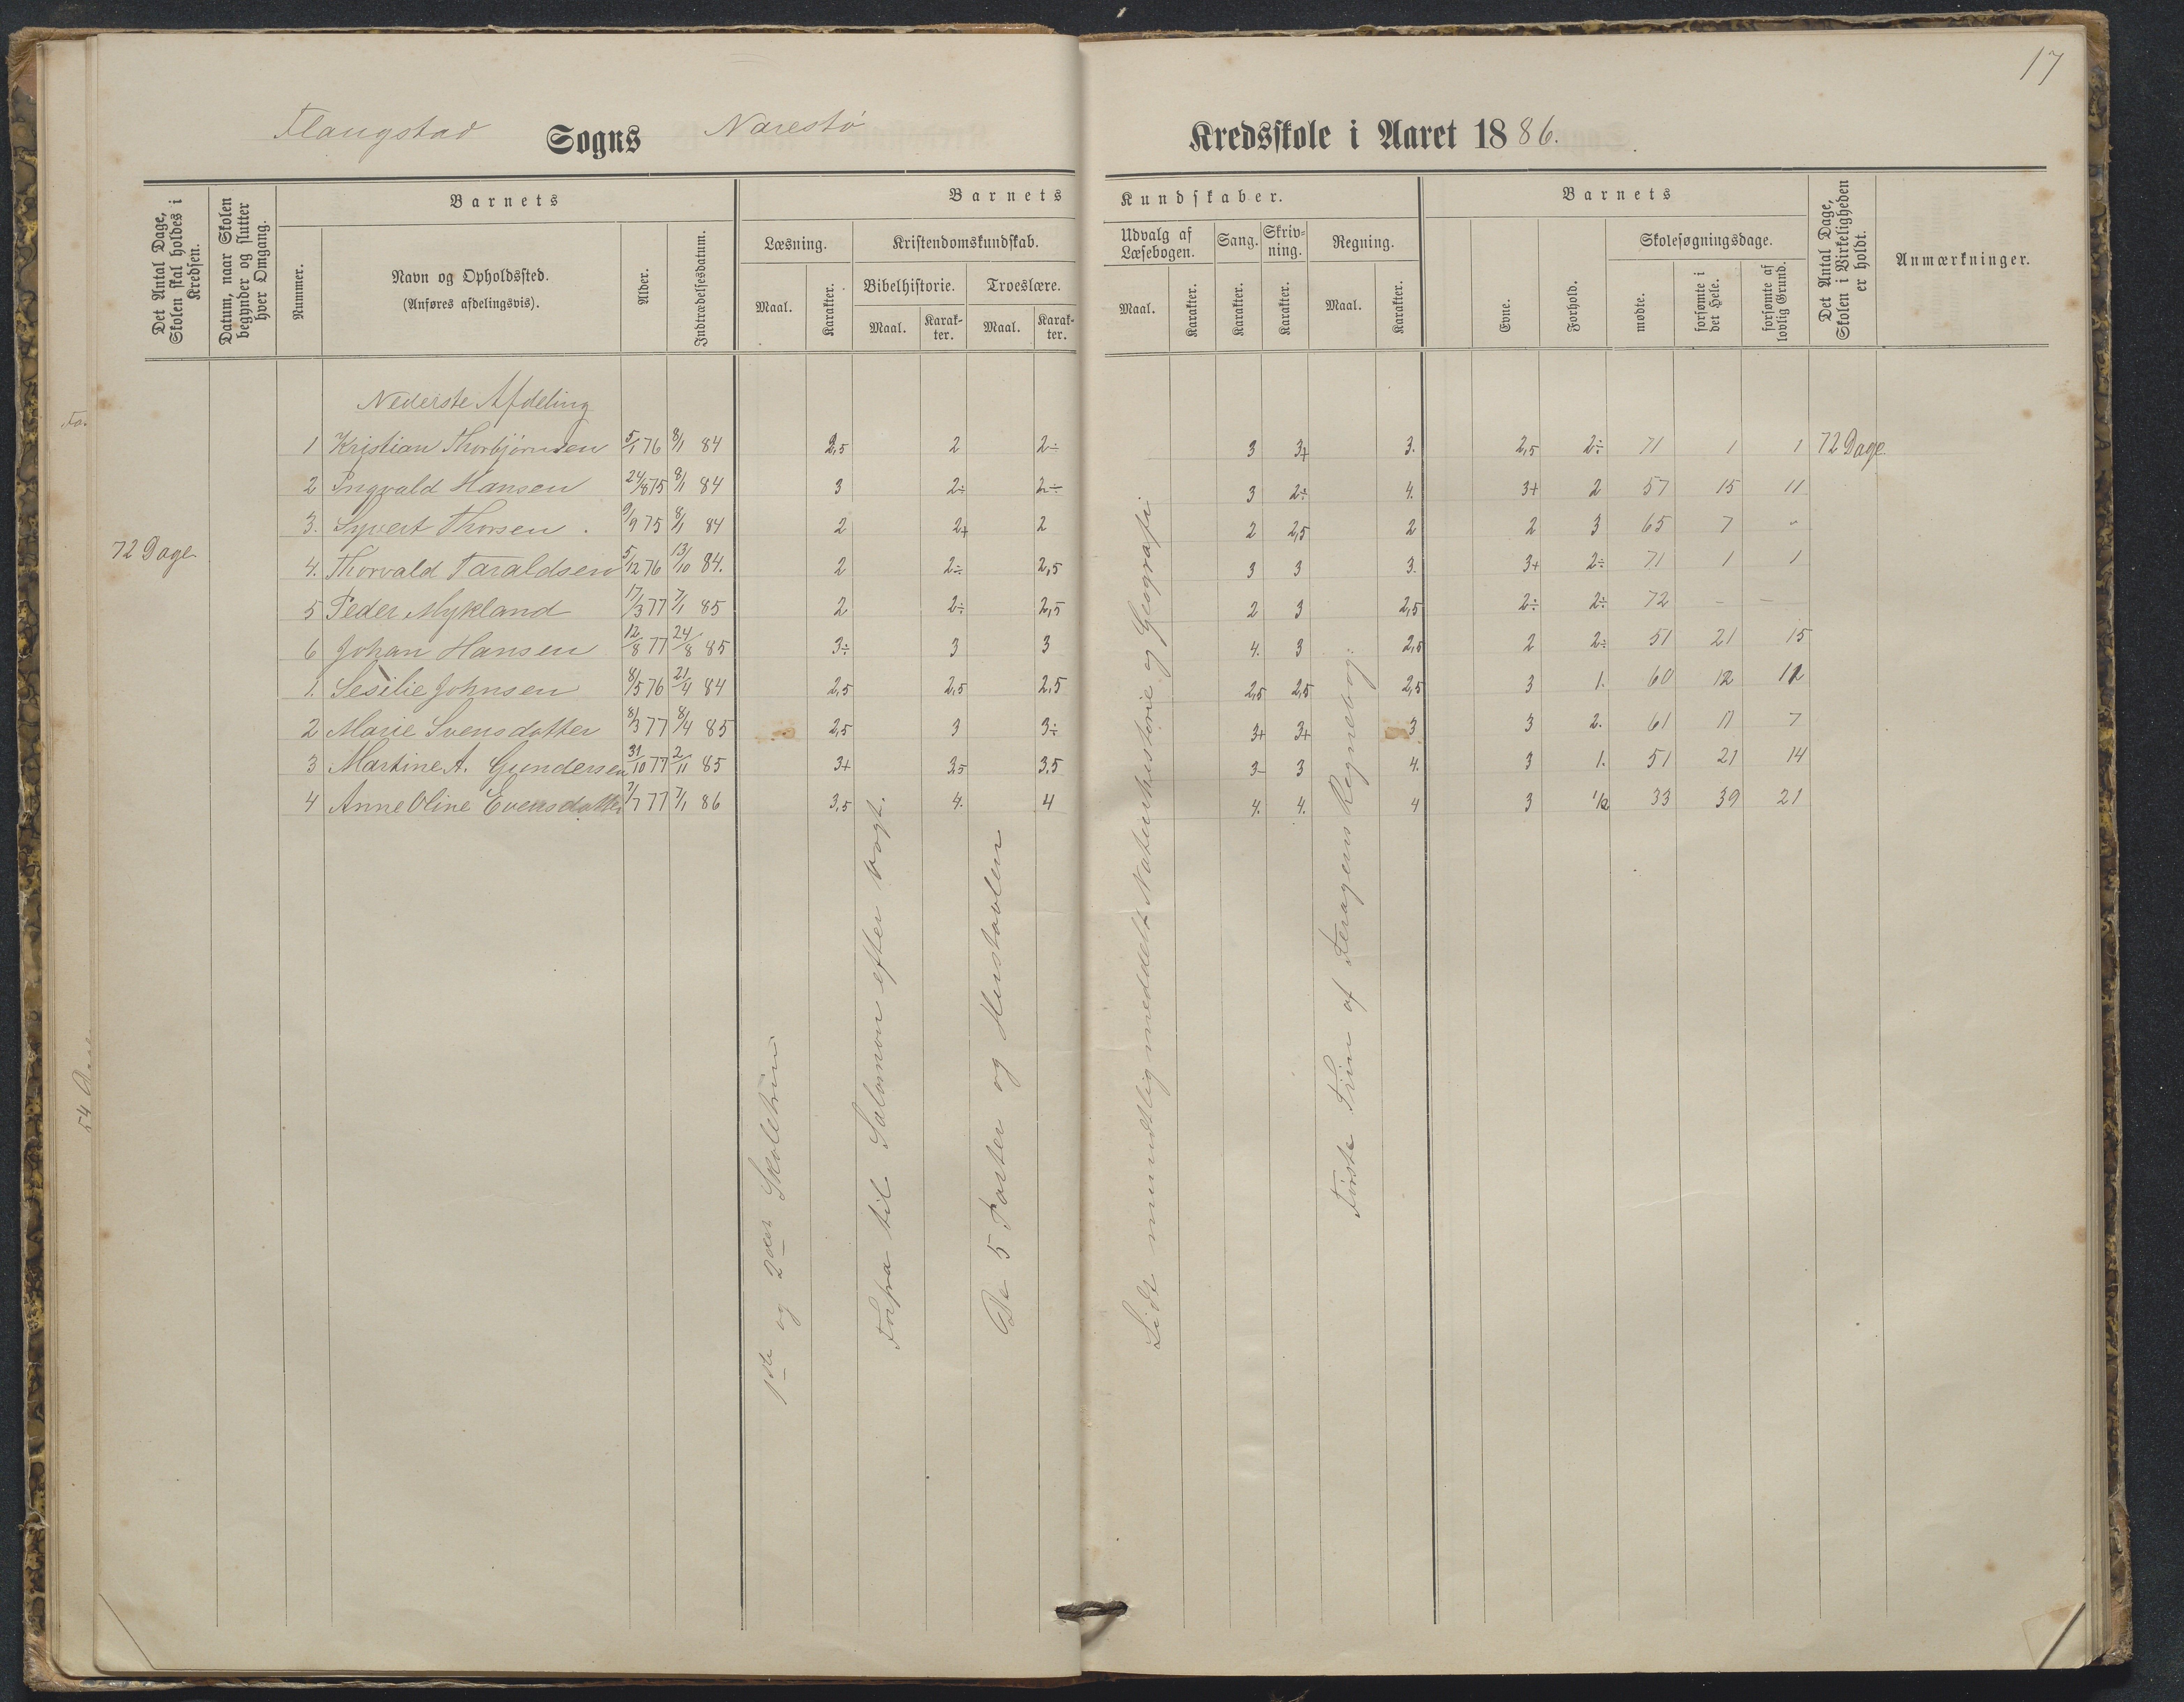 17
Flangstad Sogns Narestø Kredsskole i Aaret 1886.
Det Antal Dage, Skolen skal holdes i Kredsen.
Datum, naar Skolen begynder og slutter hver Omgang.
Barnets
Nummer.
Navn og Opholdssted.
(Anføres afdelingsvis).
Alder.
Indtrædelsesdatum.
Barnets Kundskaber.
Læsning.
Maal.
Karakter.
Kristendomskundskab.
Bibelhistorie.
Maal.
Karakter.
Troeslære.
Maal.
Karakter.
Udvalg af Læsebogen.
Maal.
Karakter.
Sang.
Karakter.
Skrivning.
Karakter.
Regning.
Maal.
Karakter.
Barnets
Evne.
Forhold.
Skolesøgningsdage.
mødte.
forsømte i det Hele.
forsømte af lovlig Grund.
Det Antal Dage, Skolen i Virkeligheden er holdt.
Anmærkninger.
Nederste Afdeling
1 Kristian Thorbjørnsen 5/1 76 8/1 84 2,5 2 2÷ 3 3+ 3. 2,5 2÷ 71 1 1 72 Dage.
2 Ingvald Hansen 24/8 75 8/1 84 3 2÷ 2÷ 3 2÷ 4. 3+ 2 57 15 11
3. Syvert Thorsen. 9/9 75 8/1 84 2 2+ 2 2 2,5 2 2 3 65 7 "
72 Dage.
4. Thorvald Taraldsen 5/12 76 13/10 84. 2 2÷ 2,5 3 3 3. 3+ 2÷ 71 1 1
5 Peder Mykland 17/3 77 7/1 85 2 2÷ 2,5 2 3 2,5 2÷ 2÷ 72 - -
6 Johan Hansen 12/8 77 24/8 85 3÷ 3 3 4. 3 2,5 2 2÷ 51 21 15
1. Sesilie Johnsen 8/5 76 21/4 84 2,5 2,5 2,5 2,5 2,5 2,5 3 1. 60 12 12
2 Marie Svensdatter 8/3 77 8/4 85 2,5 3 3÷ 3+ 3+ 3 3 2. 61 11 7
3 Martine A. Gundersen 31/10 77 2/11 85 3+ 3,5 3,5 3- 3 4. 3 1. 51 21 14
4 Anne Oline Evensdatter 7/7 77 7/1 86 3,5 4. 4 4. 4. 4 3 1/2 33 39 21
1ste og 2det Skoletrin
Forfra til Salomon efter Vogt.
De 5 Parter og Hustavlen
Lidt mundtlig meddelt Naturhistorie og Geografi
Første Trin af Feragens Regnebog.
54 Dage